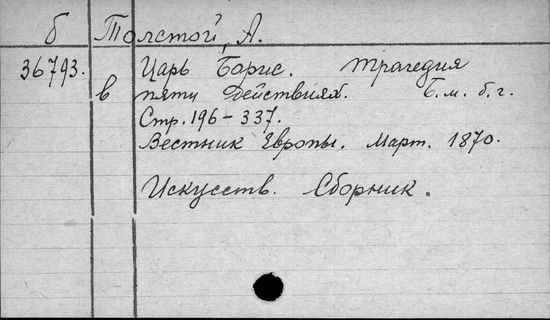 б Толстой, А.
36793. Царь Борис. трагедия
в пяти действиях. Б. м. б. г.
Стр. 196-337.
Вестник Европы. Март. 1870.
Искусств. Сборник.